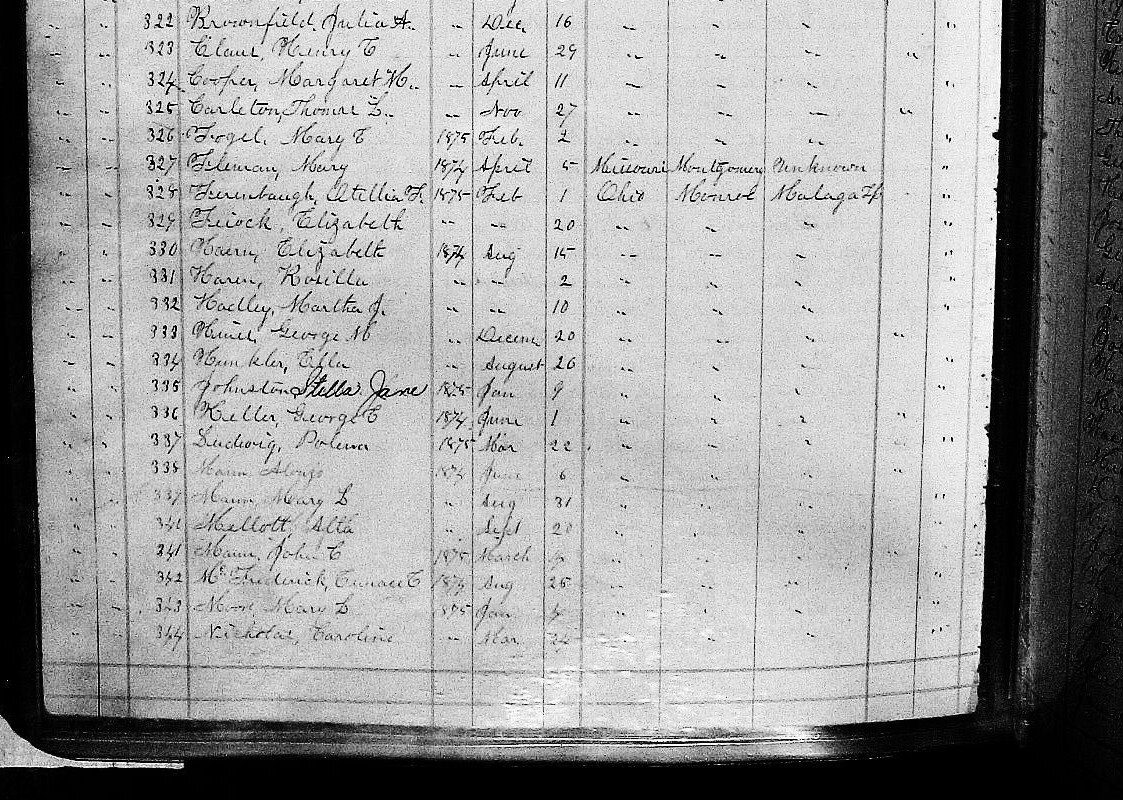 322 Brownfield, Julia A. " Dec. 16 " " "
323 Claus, Henry C " June 29 " " " "
324 Cooper, Margaret M. " April 11 " " "
325 Carleton, Thomas L. " Nov 27 " " " "
326 Fogel, Mary E 1875 Feb. 2 " " "
327 Fleman, Mary 1874 April 5 Missouri Montgomery Unknown "
328 Ferenbaugh, Otellia F. 1875 Feb 1 Ohio Monroe Malaga Tp "
329 Fricock, Elizabeth " " 20 " " " "
330 Elizabeth 1874 Aug 15 " " " "
331 Haren, Rosilla " " 2 " " " "
332 Hadley, Martha J. " " 10 " " " "
333 Hines, George M " Decem 20 " " " " "
334 Hunkler, Effa " August 26 " " " "
335 Johnston Stella Jane 1875 Jan 9 " " " "
336 Keller, George E 1874 June 1 " " " " "
337 Ludwig, Polena 1875 Mar 22 " " " "
338 Mann Alonzo 1874 June 6 " " " " "
337 Mann, Mary L " Aug 31 " " " "
341 Mellott, Alta " Sept 20 " " " "
341 Mann, John C 1875 March 4 " " " " "
342 Mc Frederick, 1874 Aug 25 " " " "
343 Moore, Mary L 1875 Jan 4 " " " "
344 Nicholas, Caroline " Mar 24 " " " "